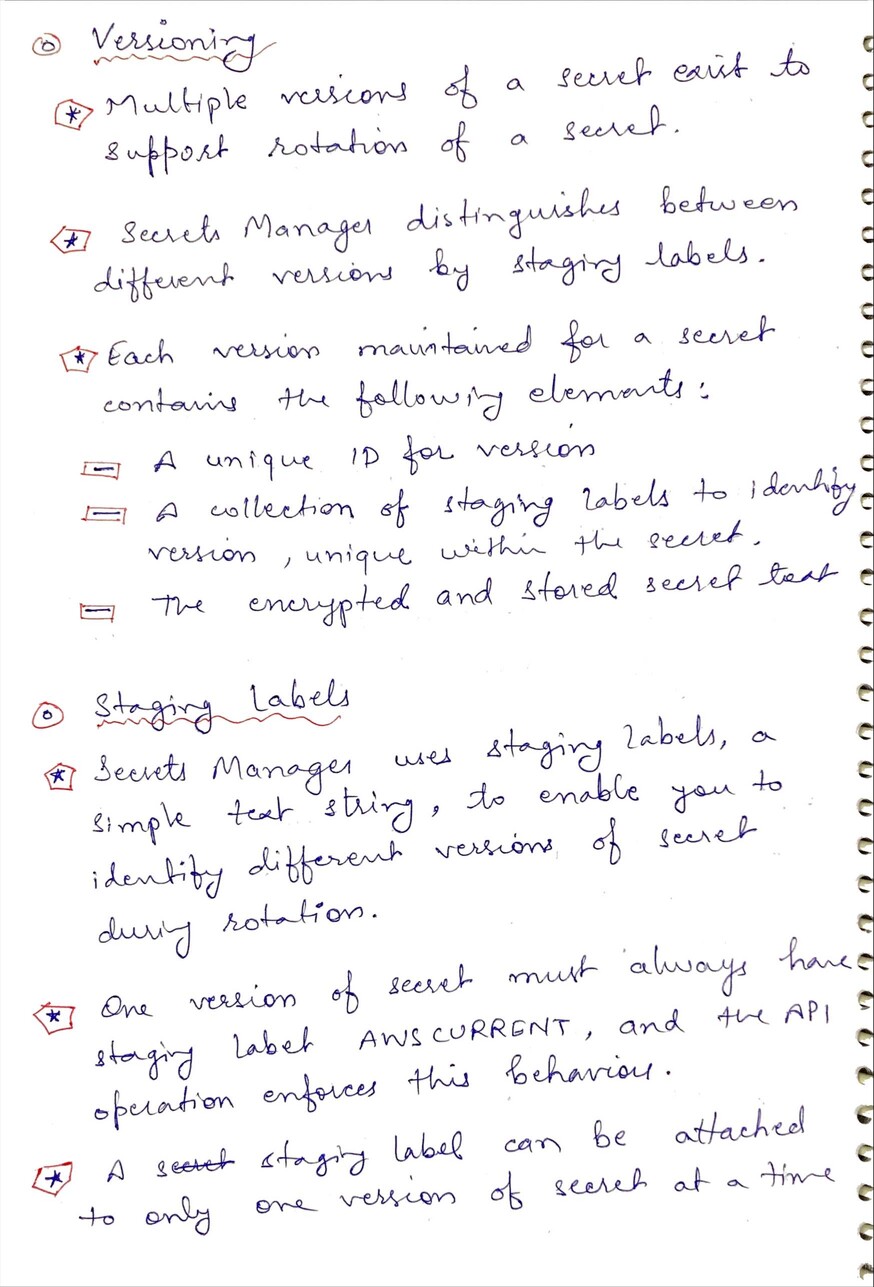 Versioning
Multiple versions of a secret exist to
support rotation of a secret.
Secrets Manager distinguishes between
different versions by staging labels.
Each version maintained for a secret
contains the following elements:
A unique ID for version
A collection of staging labels to identify
version, unique within the secret.
The encrypted and stored secret text
Staging Labels
Secrets Manager uses staging labels, a
simple text string, to enable you to
identify different versions of secret
during rotation.
One version of secret must always have
staging label AWSCURRENT, and the API
operation enforces this behaviour.
A secret staging label can be attached
to only one version of secret at a time